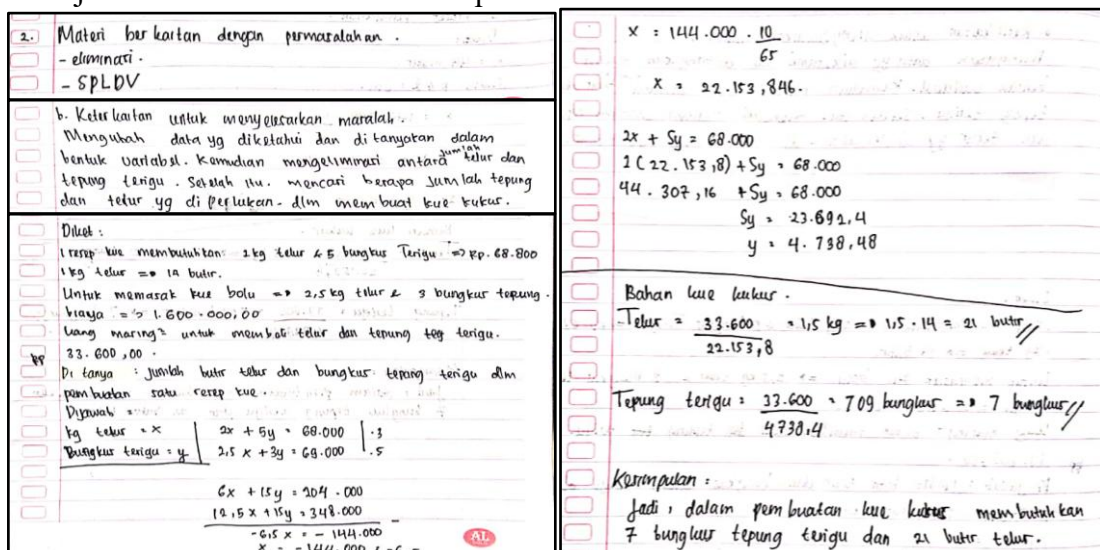 2. Materi berkaitan dengan permasalahan.
- eliminasi.
- SPLDV
b. Keterkaitan untuk menyelesaikan masalah.
Mengubah data yg diketahui dan ditanyakan dalam
bentuk variabel. Kemudian mengeliminasi antara jumlah telur dan
tepung terigu. Setelah itu. mencari berapa jumlah tepung
dan telur yg diperlukan. dlm membuat kue kukus.
Diket :
1 resep kue membutuhkan 2 kg telur & 5 bungkus Terigu => Rp. 68.800
1 kg telur => 14 butir.
Untuk memasak kue bolu => 2,5 kg telur & 3 bungkus tepung.
biaya => 1.600.000,00
Uang masing² untuk membeli telur dan tepung terigu.
Rp 33.600,00.
Ditanya : jumlah butir telur dan bungkus tepung terigu dlm
pembuatan satu resep kue.
Dijawab =
kg telur = x | 2x + 5y = 68.000 | .3
Bungkus terigu = y | 2,5 x + 3y = 69.000 | .5
6x + 15y = 204.000
12,5x + 15y = 348.000
-6,5 x = - 144.000 -
AL
x = 144.000 . 10
65
x = 22.153,846.
2x + 5y = 68.000
2 (22.153,8) + 5y = 68.000
44.307,16 + 5y = 68.000
5y = 23.692,4
y = 4.738,48
Bahan kue kukus.
Telur = 33.600 = 1,5 kg => 1,5 . 14 = 21 butir //
22.153,8
Tepung terigu = 33.600 = 709 bungkus => 7 bungkus //
4738,4
Kesimpulan =
Jadi, dalam pembuatan kue kukus membutuhkan
7 bungkus tepung terigu dan 21 butir telur.